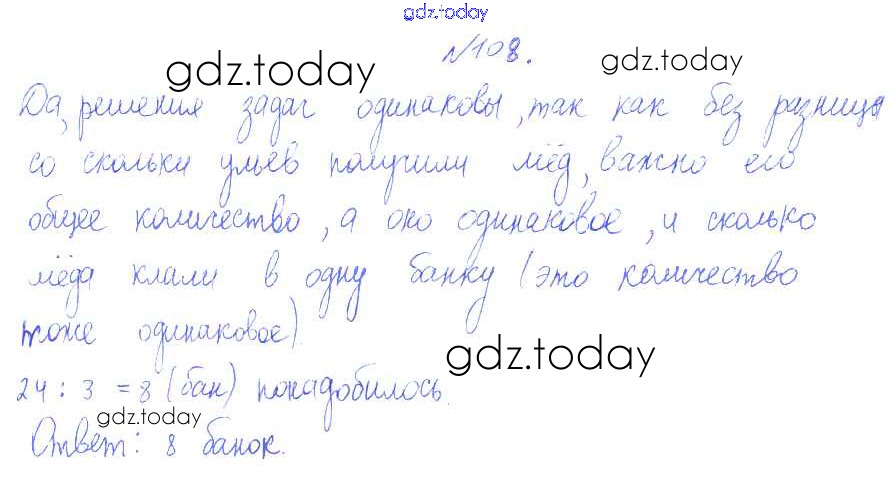 gdz.today
№108.
gdz.today gdz.today
Да, решения задач одинаковы, так как без разницы
со скольки ульев получили мёд, важно его
общее количество, а оно одинаковое, и сколько
мёда клали в одну банку (это количество
тоже одинаковое).
gdz.today
24 : 3 = 8 (бан) понадобилось.
gdz.today
Ответ: 8 банок.